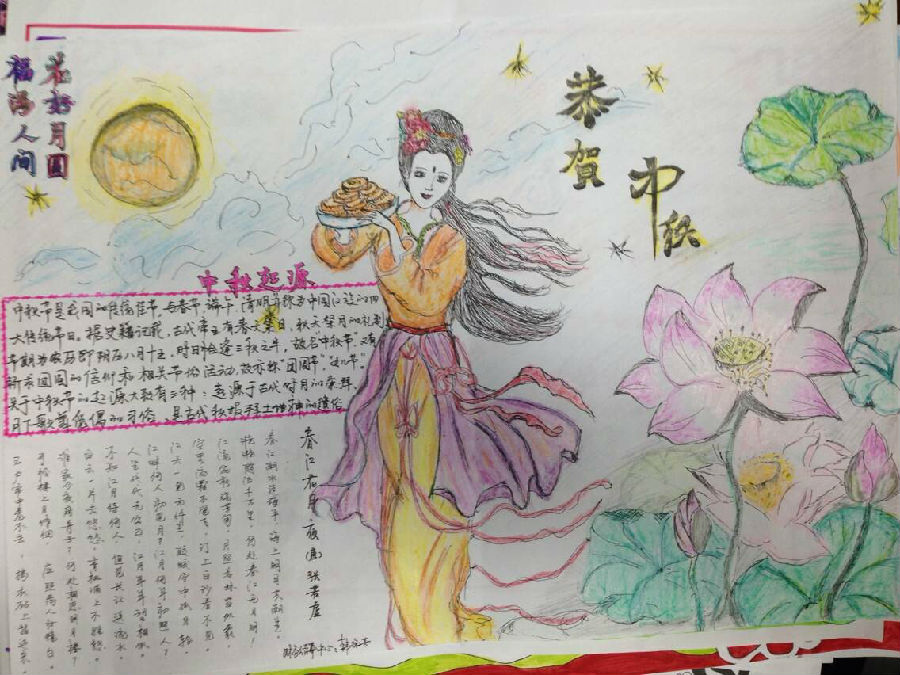 花好月圆
福满人间
恭贺
中秋
中秋起源
中秋节是我国的传统佳节，与春节、端午、清明并称为中国汉族的四
大传统节日。据史籍记载，古代帝王有春天祭日、秋天祭月的礼制
节期为农历八月十五，时日恰逢三秋之半，故名"中秋节"，又有
祈求团圆的信仰和相关节俗活动，故亦称"团圆节"
关于中秋节的起源大致有三种：起源于古代对月的崇拜
月下歌舞觅偶的习俗，是古代秋报拜土地神的遗俗
春江花月夜 唐 张若虚
春江潮水连海平，海上明月共潮生。
滟滟随波千万里，何处春江无月明！
江流宛转绕芳甸，月照花林皆似霰。
空里流霜不觉飞，汀上白沙看不见
江天一色无纤尘，皎皎空中孤月轮
江畔何人初见月？江月何年初照人？
人生代代无穷已，江月年年望相似。
不知江月待何人，但见长江送流水
白云一片去悠悠，青枫浦上不胜愁。
谁家今夜扁舟子？何处相思明月楼？
可怜楼上月徘徊，应照离人妆镜台。
玉户帘中卷不去，捣衣砧上拂还来。